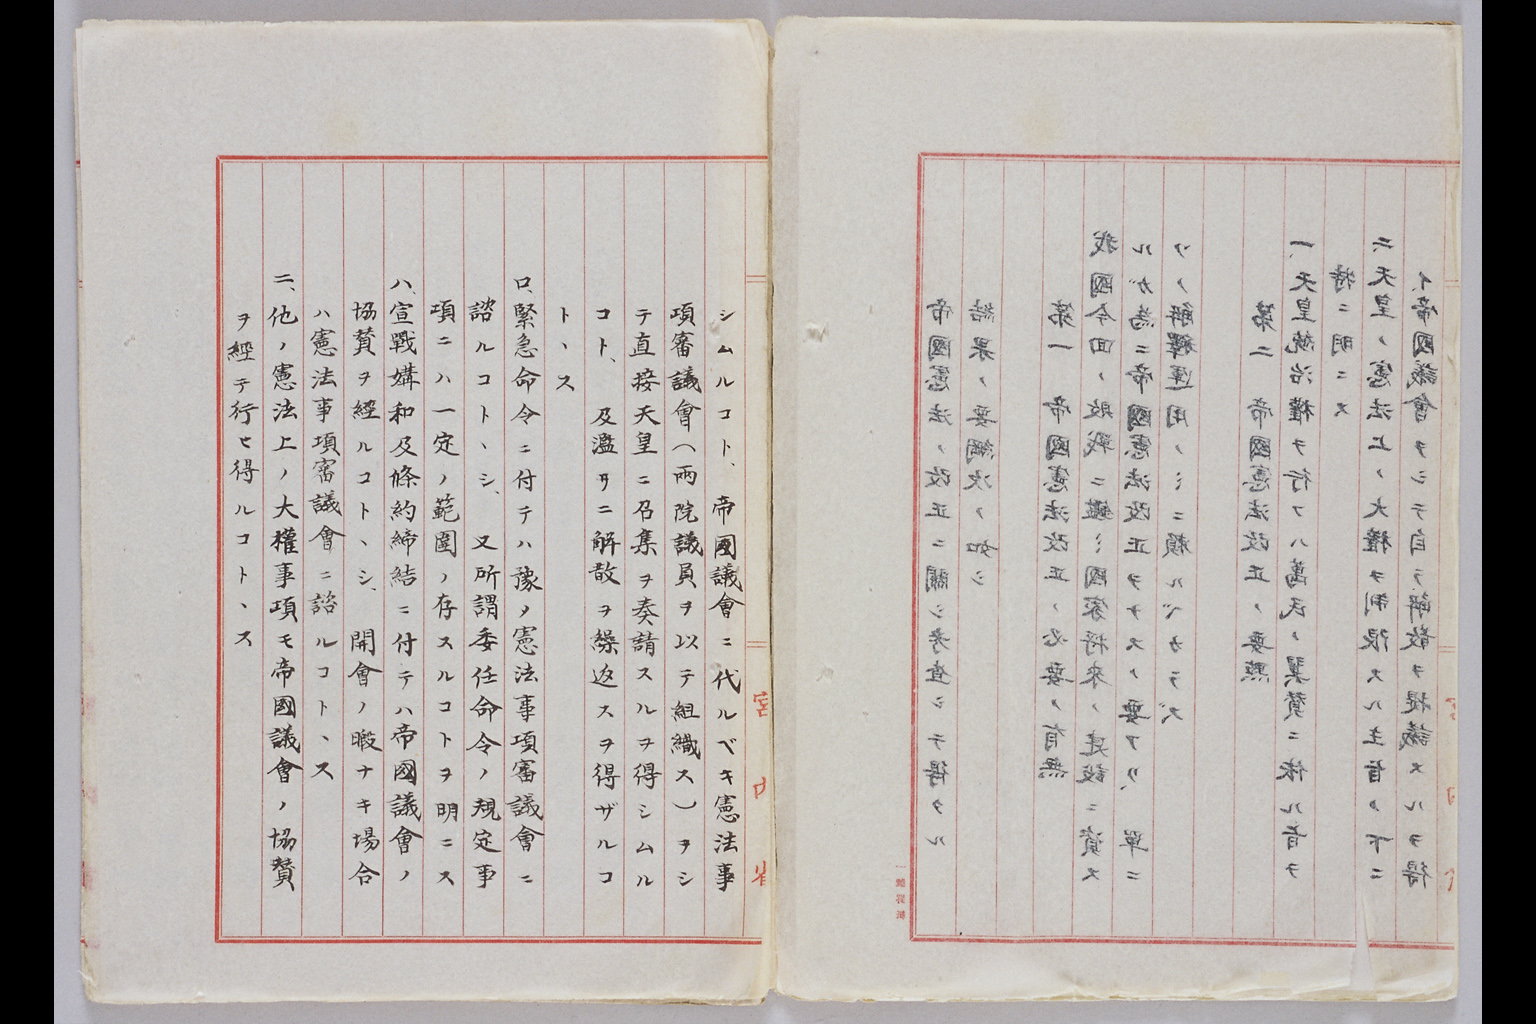 帝國憲法ノ改正ニ關シ考査シテ得タル
結果ノ要綱次ノ如シ
第一 帝國憲法改正ノ必要ノ有無
我國今回ノ敗戰ニ鑑ミ國家将来ノ建設ニ資ス
ルガ為ニ帝國憲法改正ヲナスノ要アリ、單ニ
ソノ解釋運用ノミニ頼ルベカラズ
第二 帝國憲法改正ノ要點
一、天皇統治權ヲ行フハ萬民ノ翼賛ニ依ル旨ヲ
特ニ明ニス
二、天皇ノ憲法上ノ大權ヲ制限スル主旨ノ下ニ
イ、帝國議會ヲシテ自ラ解散ヲ提議スルヲ得
シムルコト、帝國議會ニ代ルベキ憲法事
項審議會(兩院議員ヲ以テ組織ス)ヲシ
テ直接天皇ニ召集ヲ奏請スルヲ得シムル
コト、及濫リニ解散ヲ繰返スヲ得ザルコ
トヽス
ロ、緊急命令ニ付テハ豫ノ憲法事項審議會ニ
諮ルコトヽシ、又所謂委任命令ノ規定事
項ニハ一定ノ範圍ノ存スルコトヲ明ニス
ハ、宣戰媾和及條約締結ニ付テハ帝國議會ノ
協賛ヲ經ルコトヽシ、開會ノ暇ナキ場合
ハ憲法事項審議會ニ諮ルコトヽス
二、他ノ憲法上ノ大權事項モ帝國議會ノ協賛
ヲ經テ行ヒ得ルコトヽス
宮内省